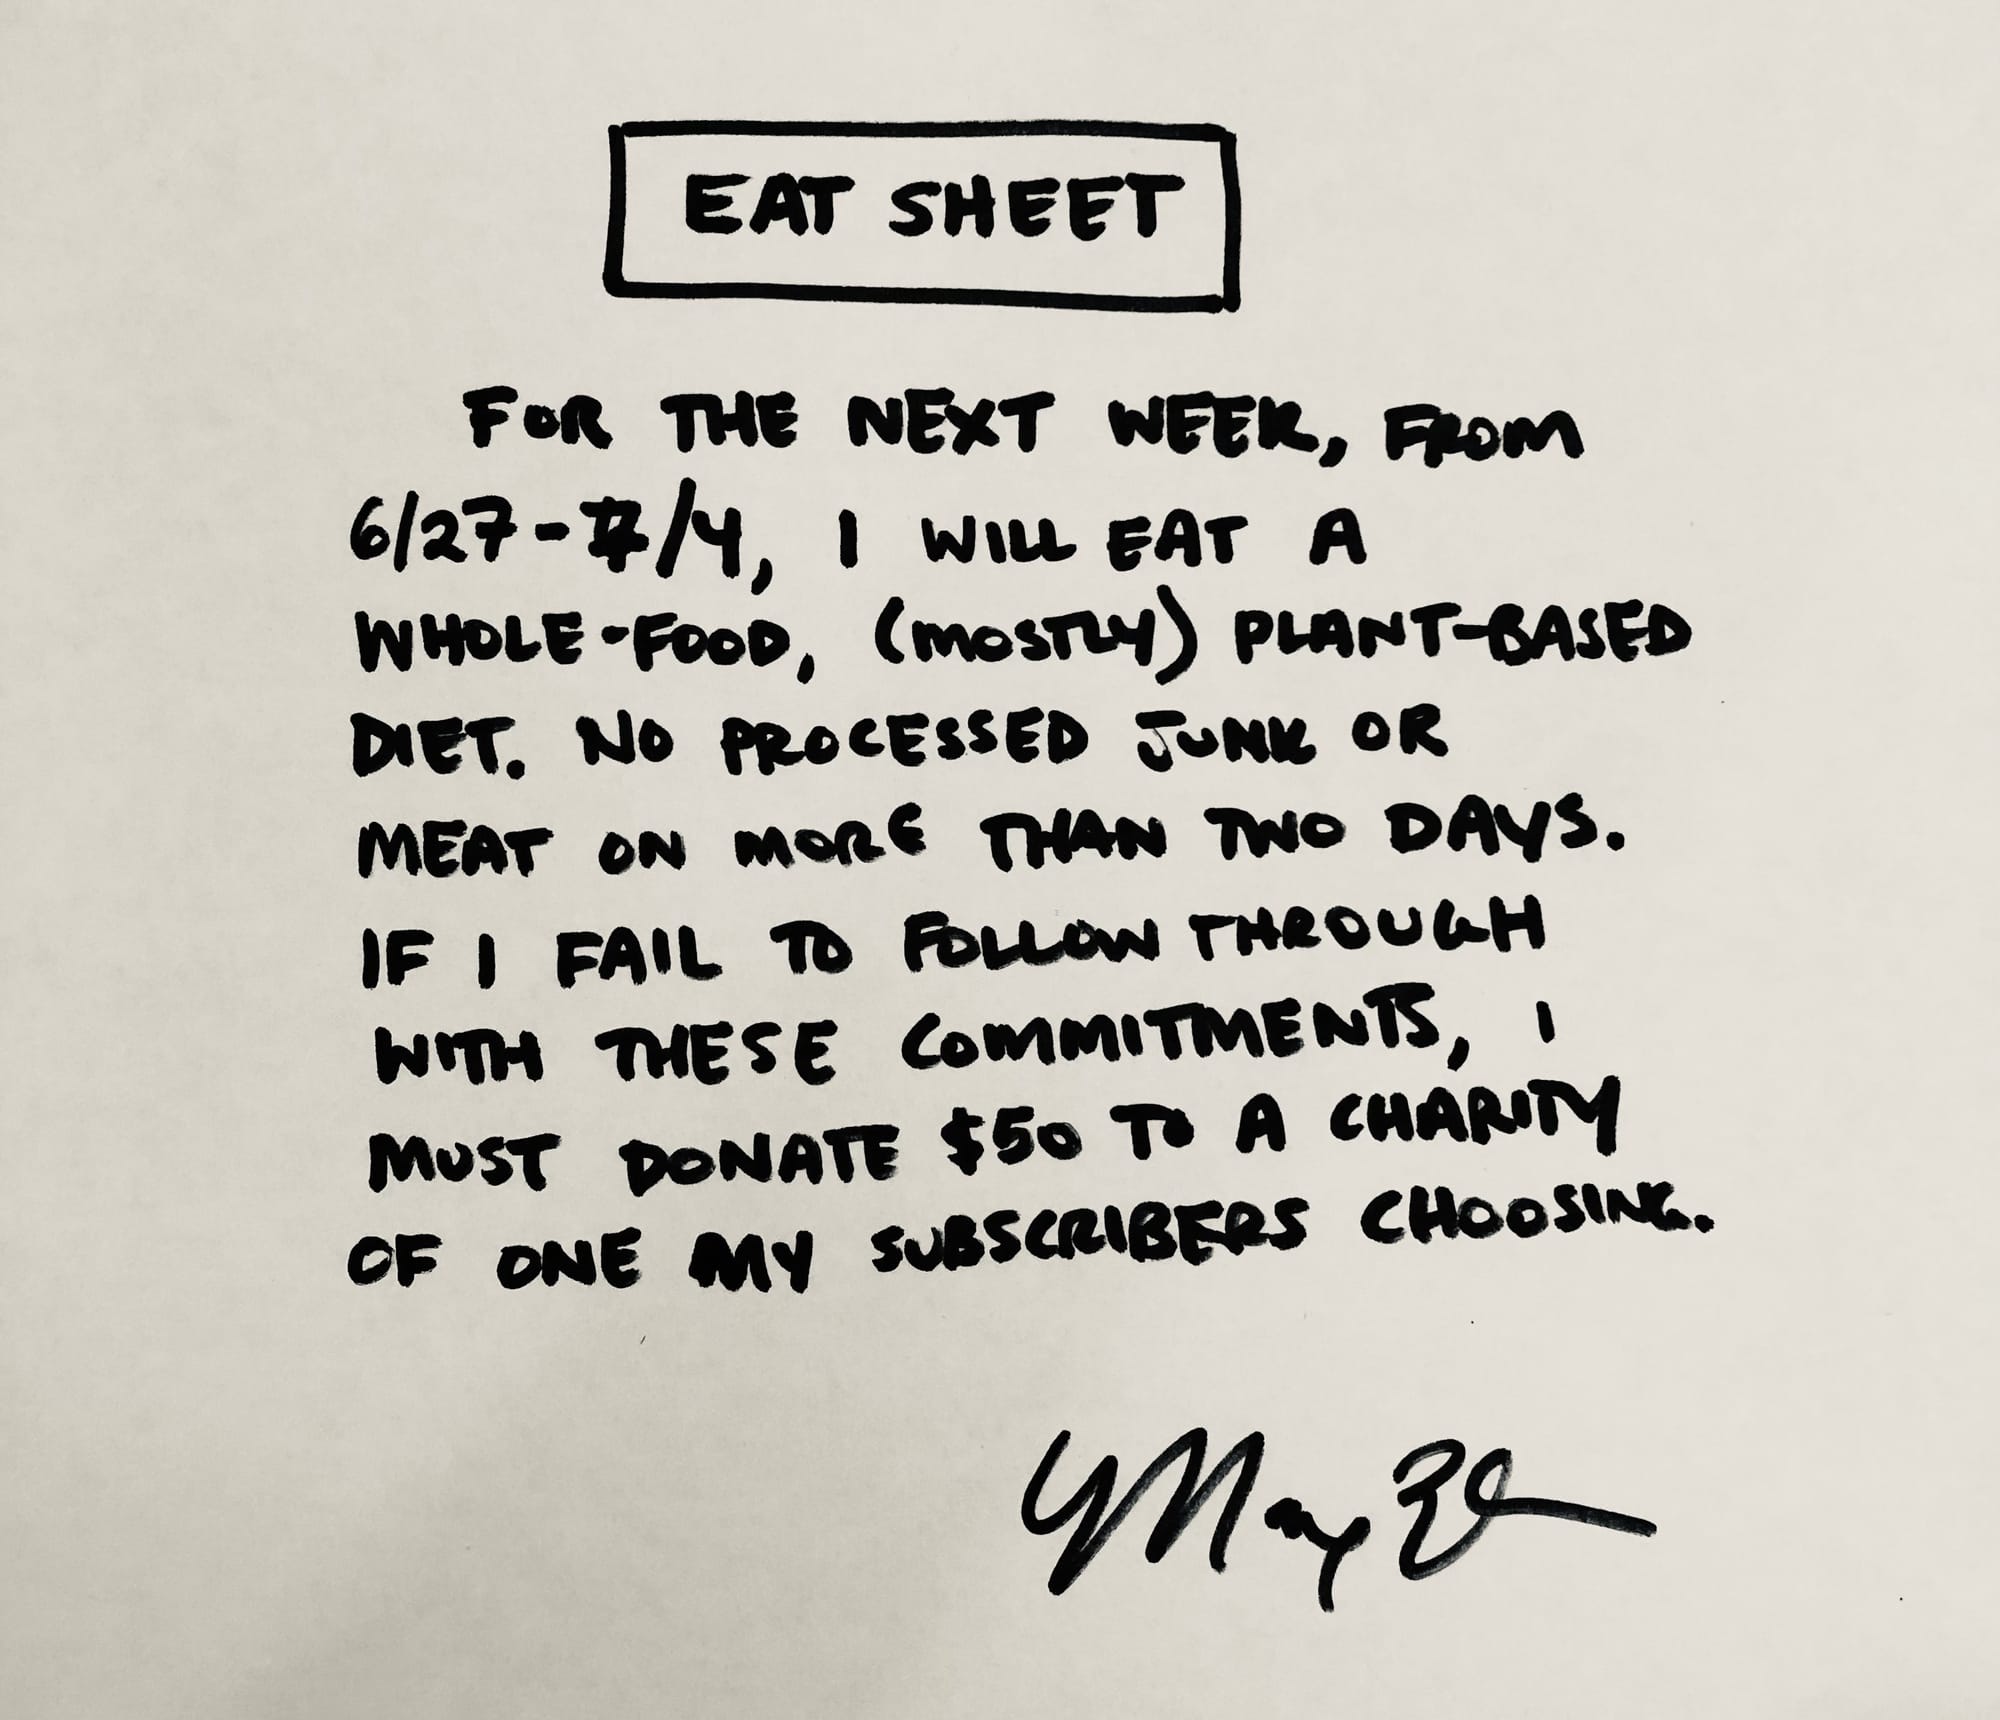 EAT SHEET
FOR THE NEXT WEEK, FROM
6/27-7/4, I WILL EAT A
WHOLE-FOOD, (MOSTLY) PLANT-BASED
DIET. NO PROCESSED JUNK OR
MEAT ON MORE THAN TWO DAYS.
IF I FAIL TO FOLLOW THROUGH
WITH THESE COMMITMENTS, I
MUST DONATE $50 TO A CHARITY
OF ONE MY SUBSCRIBERS CHOOSING.